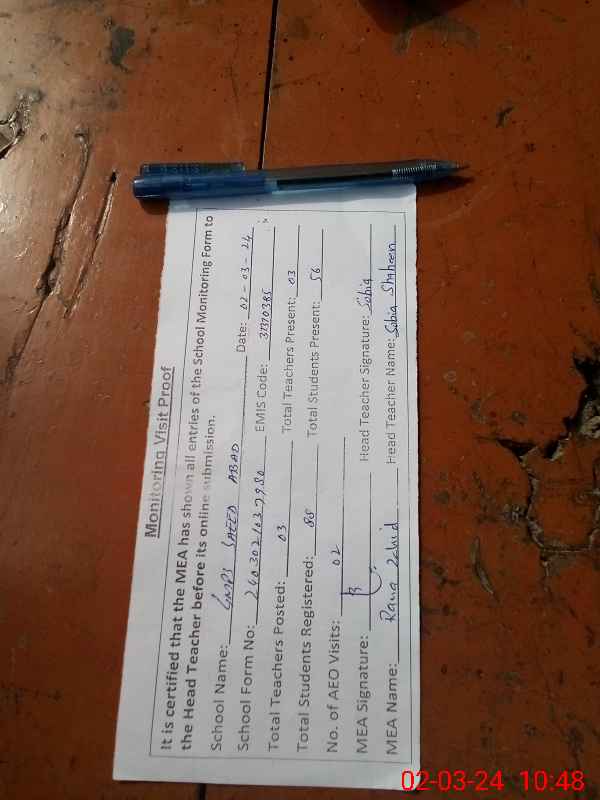 Monitoring Visit Proof
It is certified that the MEA has shown all entries of the School Monitoring Form to
the Head Teacher before its online submission.
School Name: GMPS SAEED ABAD Date: 02-03-24
School Form No: 2403021037980 EMIS Code: 31370385
Total Teachers Posted: 03 Total Teachers Present: 03
Total Students Registered: 88 Total Students Present: 56
No. of AEO Visits: 02
MEA Signature: Head Teacher Signature: Sobia
MEA Name: Rana Zahid Head Teacher Name: Sobia Shaheen
02-03-24 10:48